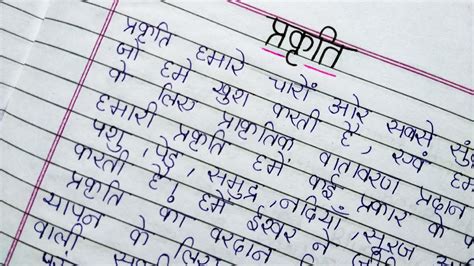 प्रकृति
प्रकृति हमारे चारों ओर सबसे
जो हमे खुश करती है, एवं
के लिए प्राकृतिक वातावरण प्रदान
हमारी प्रकृति हमें कई प्रकार के
पशु, पेड़, समुद्र, नदियाँ, सूरज
करती है। हमें ईश्वर ने
प्रकृति का वरदान
यापन के लिए
वाली